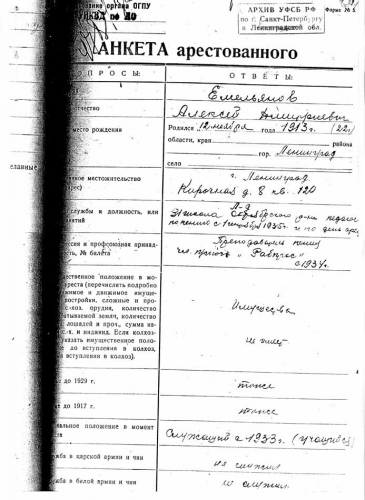 ование органа ОГПУ
НКВД по ЛО
АРХИВ УФСБ РФ
по г. Санкт-Петербургу
и Ленинградской обл.
Форма № 5.
АНКЕТА арестованного
ОПРОСЫ:
ОТВЕТЫ:
Емельянов
отчество
Алексей Дмитриевич
место рождения
Родился „12 ноября года 1913 г. (22 г.)
области, края района
гор. Ленинград
село
нное местожительство
г. Ленинград
рес)
Кирочная д. 8 кв. 120
службы и должность, или
нятий
школа Октябрьского р-на
по день ар.
ссия и профсоюзная принад-
сть, № билета
Преподаватель
„Рабпрос"
с 1934 г.
щественное положение в мо-
реста (перечислить подробно
жимое и движимое имуще-
постройки, сложные и про-
с.-хоз. орудия, количество
атываемой земли, количество
лошадей и проч., сумма на-
х. и индивид. Если колхоз-
указать имущественное поло-
е до вступления в колхоз,
вступления в колхоз).
Имущества
не имеет
е до 1929 г.
тоже
е до 1917 г.
тоже
иальное положение в момент
Служащий с 1933 г. (учащийся)
жба в царской армии и чин
не служил
жба в белой армии и чин
не служил
славные